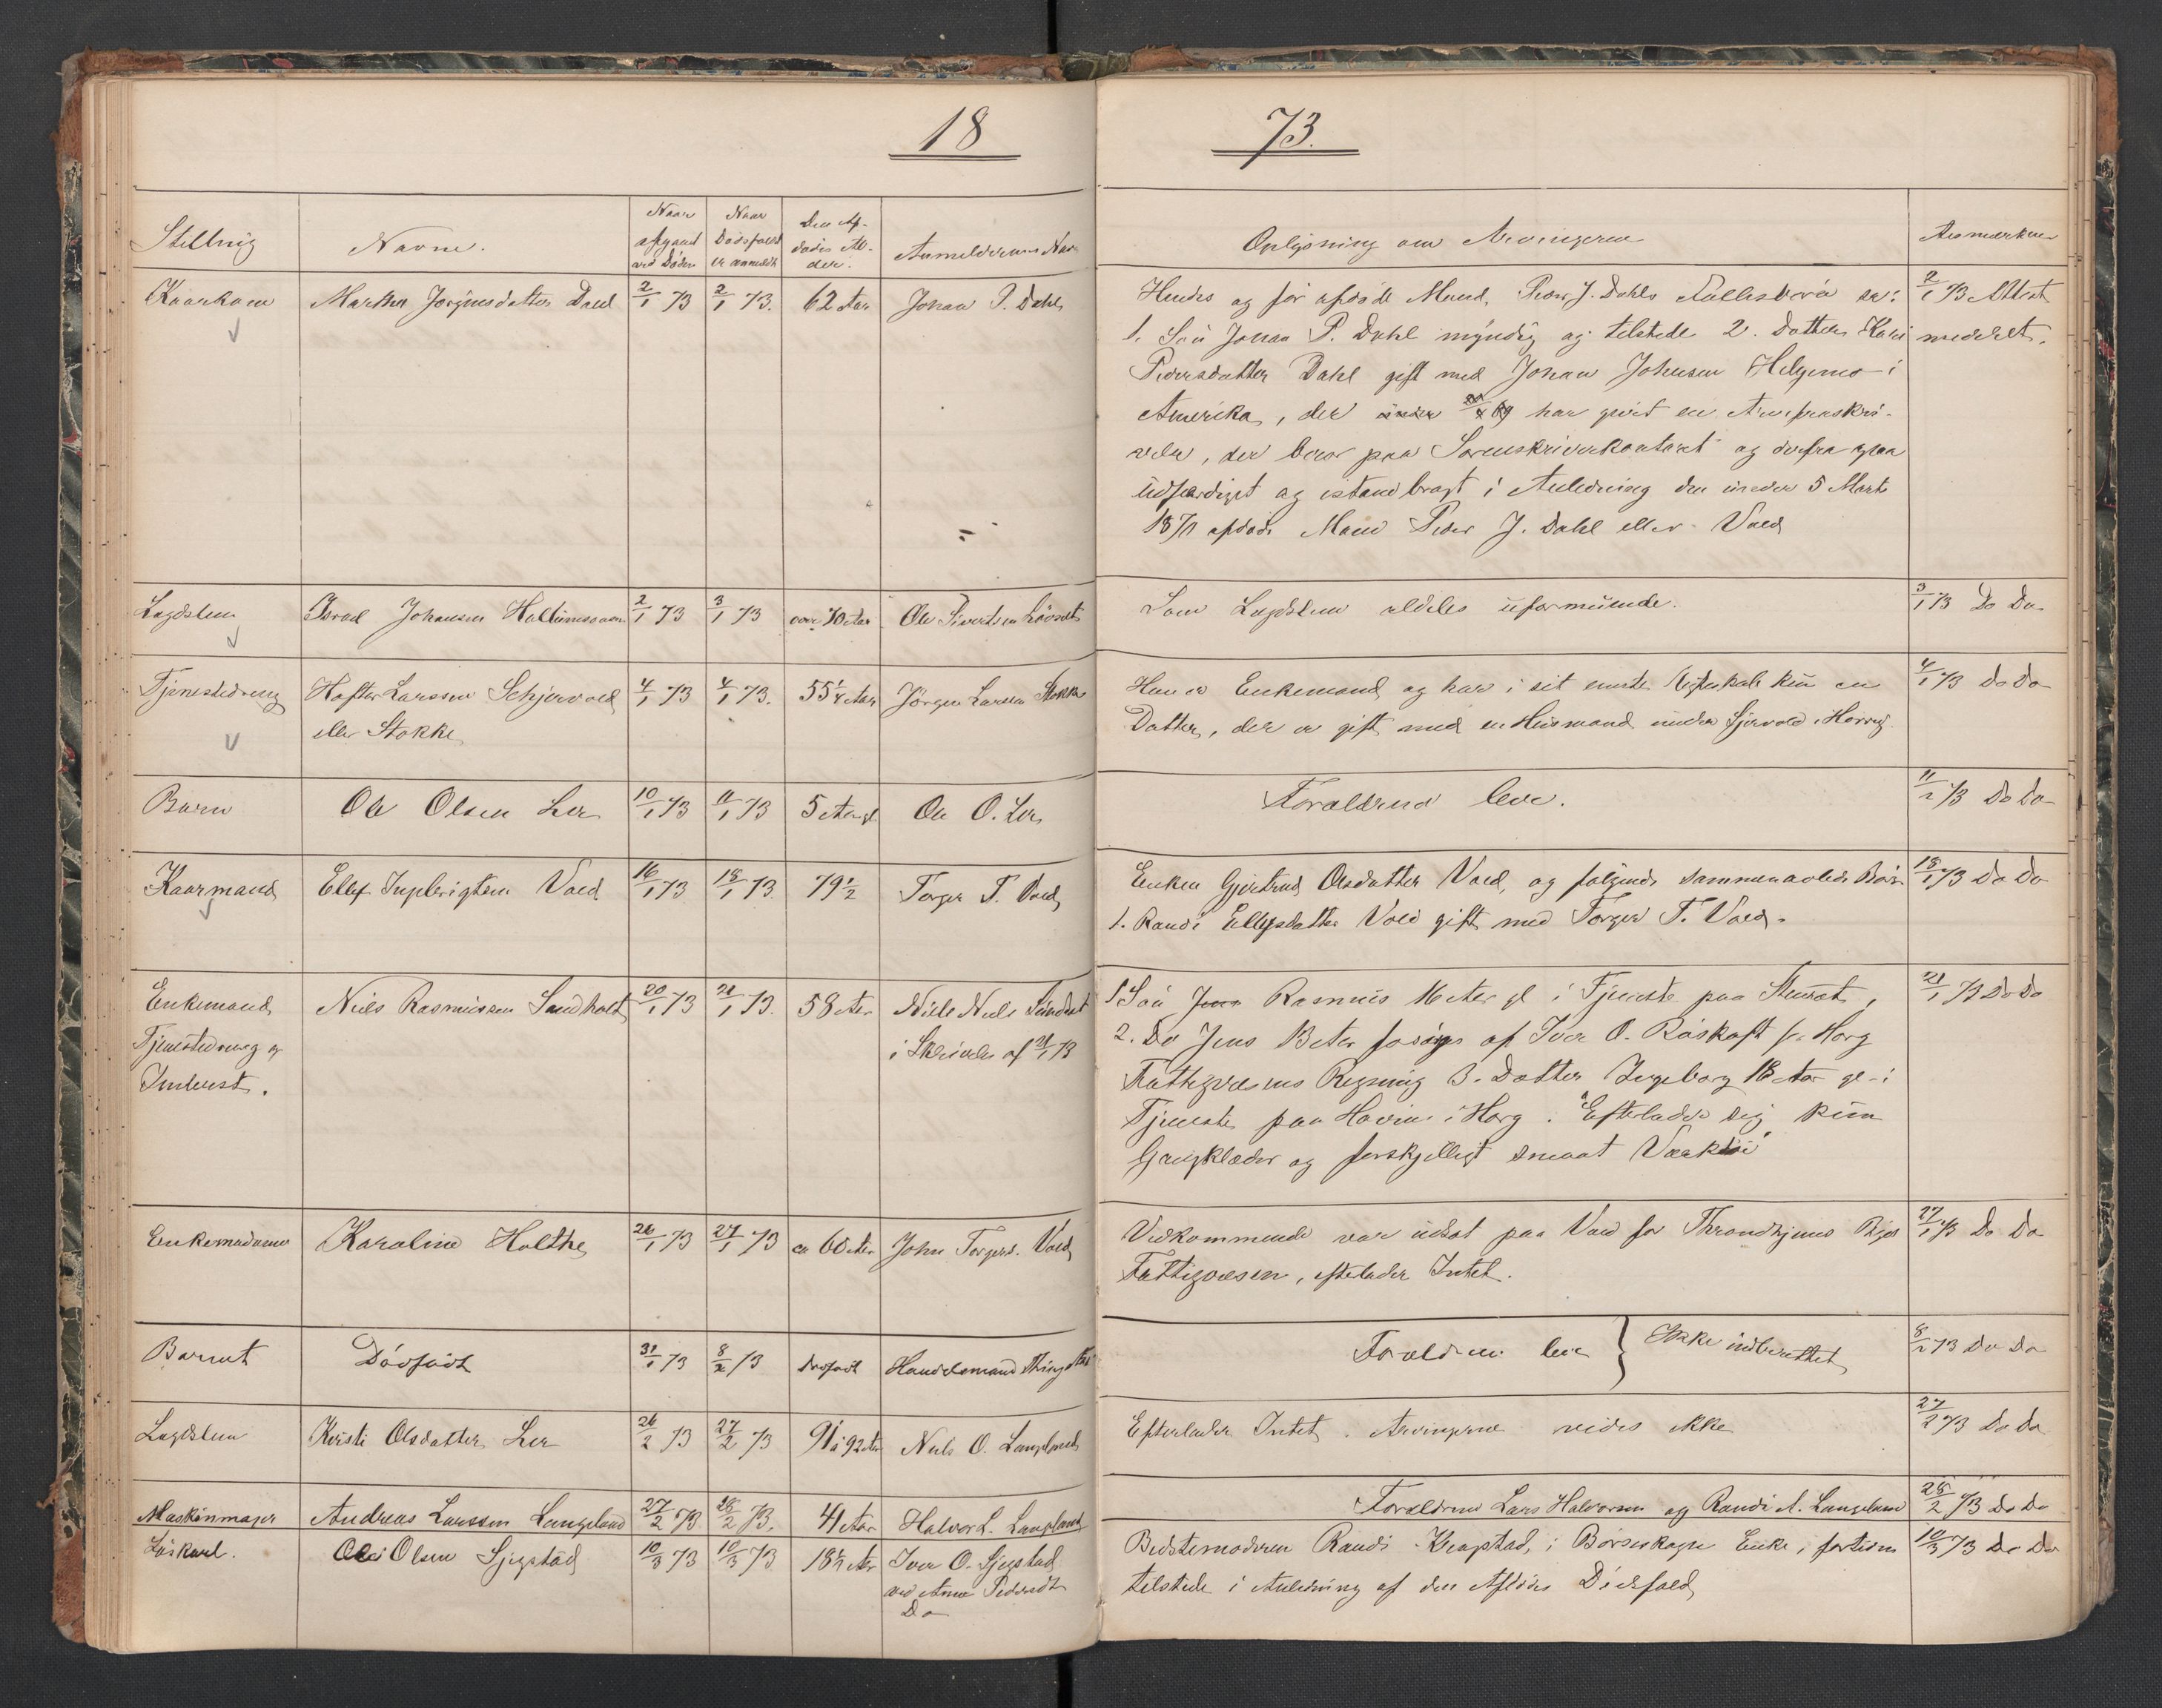 18
73.
Stilling
Navne.
Naar
afgaaet
ved Døden
Naar
Dødsfaldet
er anmeldt
Den Af-
dødes Al-
der.
Anmelderens Navn
Oplysning om Arvingerne
Anmærkning
Kaarkone
Marther Jørginsdatter Dahl
2/1 73
2/1 73.
62 Aar
Johan P. Dahl
Hendes og før afdøde Mand, Peder J. Dahls Fællesbørn er:
1. Søn Johan P. Dahl myndig og tilstede 2. Datter Kari
Pedersdatter Dahl gift med Johan Johnsen Helgemo i
Amerika, der har givet en Arvefraskri-
velse, der beror paa Sorenskriverkontoret og derfra
udfærdiget og istandbragt i Anledning den under 5 Marts
1870 afdøde Mand Peder J. Dahl eller Vold
2/1 73 Attest
meddelt.
Lægdslem
Israel Johansen
2/1 73
3/1 73
over 70 Aar
Ole Sivertsen Løvset
Som Lægdslem aldeles uformuende.
3/1 73 Do Do
Tjenestedreng
Hafter Larssen Schjervold
eller Stokke
4/1 73
4/1 73.
55 1/4 Aar
Jørgen Larsen Stokke
Han er Enkemand og har i sit Ægteskab kun en
Datter, der er gift med en Huusmand under Sjervold i Horrig
4/1 73 Do Do
Barn
Ole Olsen Ler
10/1 73
11/1 73
5 Aar gl.
Ole O. Ler
Forældrene leve.
11/1 73 Do Do
Kaarmand
Ellef Ingebrigtsen Vold
16/1 73
18/1 73.
79 1/2
Torger T. Vold
Enken Gjertrud Olsdatter Vold, og følgende sammenavlede Børn
1. Randi Ellefsdatter Vold gift med Torger T. Vold.
18/1 73 Do Do
Enkemand
Tjenestedreng og
Inderst.
Niels Rasmussen Sundholt
20/1 73
21/1 73.
58 Aar
Niels Niels
i Skrivelse af 21/1 73
1 Søn Jens Rasmus 16 Aar gl i Tjeneste paa
2. Do Jens 13 Aar forsørges af Iver O. Røskaft for Horg
Fattigvæsens Regning 3. Datter Ingeborg 18 Aar gl i
Tjeneste paa Hovin i Horg. Efterlader sig kun
Gangklæder og forskjelligt smaat Værktøi
21/1 73 Do Do
Enkemadame
Karoline Holthe
26/1 73
27/1 73
ca 60 Aar
John Torgers. Vold
Vedkommende var udsat paa Vold for Throndhjems Byes
Fattigvæsen, efterlader Intet.
27/1 73 Do Do
Barnet
Dødfødt
31/1 73
8/2 73
dødfødt
Handelsmand Thingstad
Forældrene leve } Ikke indberettet
8/2 73 Do Do
Lægdslem
Kirsti Olsdatter Ler
26/2 73
27/2 73
91 à 92 Aar
Niels O. Langland
Efterlader Intet. Arvingerne vides ikke
27/2 73 Do Do
Maskinmager
Andreas Larssen Langeland
27/2 73.
28/2 73.
41 Aar
Halvor L. Langland
Forældrene Lars Halvorsen og Randi A. Langeland
28/2 73 Do Do
Løskarl.
Ole Olsen Sjegstad
10/3 73
10/3 73
18 1/2 Aar
Iver O. Sjegstad
ved Anne Pedersdt
Do
Bedstemoderen Randi Krogstad, i Børseskogn Enke, fortiden
tilstede i Anledning af den Afdødes Dødsfald
10/3 73 Do Do